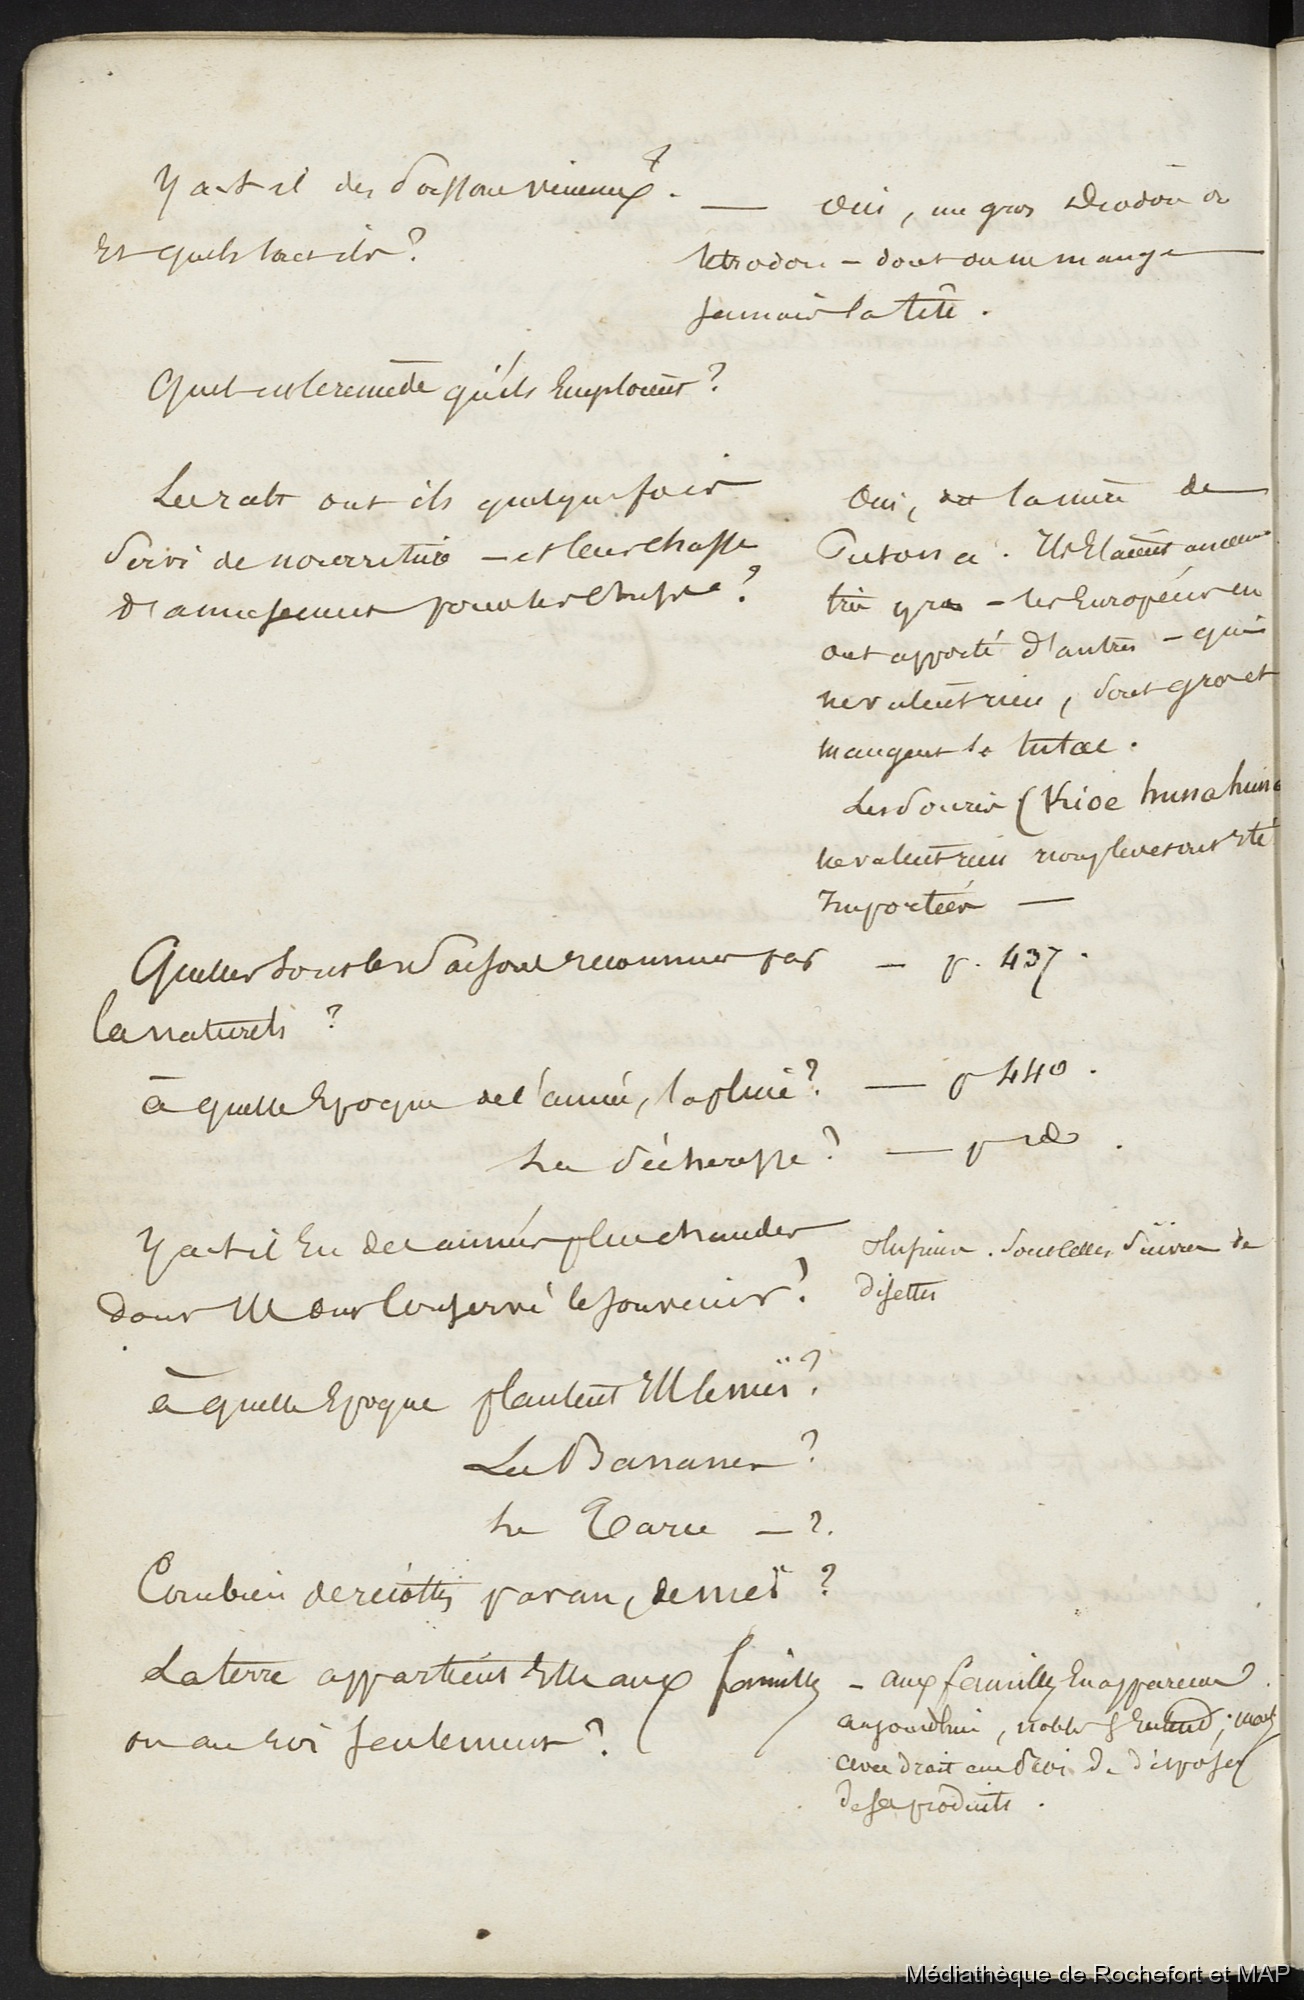 Y a-t-il des poissons venimeux ?
Et quels sont ils ?
— Oui, un gros diodon ou
tétrodon — dont on ne mange
jamais la tête.
Quel est le remède qu'ils employent ?
Les rats ont ils quelque fois
servi de nourriture — et leur chasse
d'amusement pour les chefs ?
Oui, dit la mère de
. Ils étaient anciennt
très gras — les Européens en
ont apporté d'autres — qui
ne valent rien, sont gros et
mangent le tutae.
Les souris (Kioe
ne valent rien non plus et ont été
importées —
Quelles sont les saisons reconnues par
les naturels ?
— p. 437.
à quelle époque de l'année, la pluie ?
— p 440.
La sécheresse ?
— p id.
Y a-t-il eu des années plus chaudes
dont ils ont conservé le souvenir ?
Plusieurs. Sont elles suivies de
disettes
à quelle époque plantent ils le meï ?
Les Bananes ?
Le Taru — ?
Combien de récoltes par an, de meï ?
La terre appartient elle aux familles
ou au roi seulement ?
— aux familles en apparence
aujourdhui, nobles ; mais
avec droit au Roi de disposer
de ses produits.
Médiathèque de Rochefort et MAP